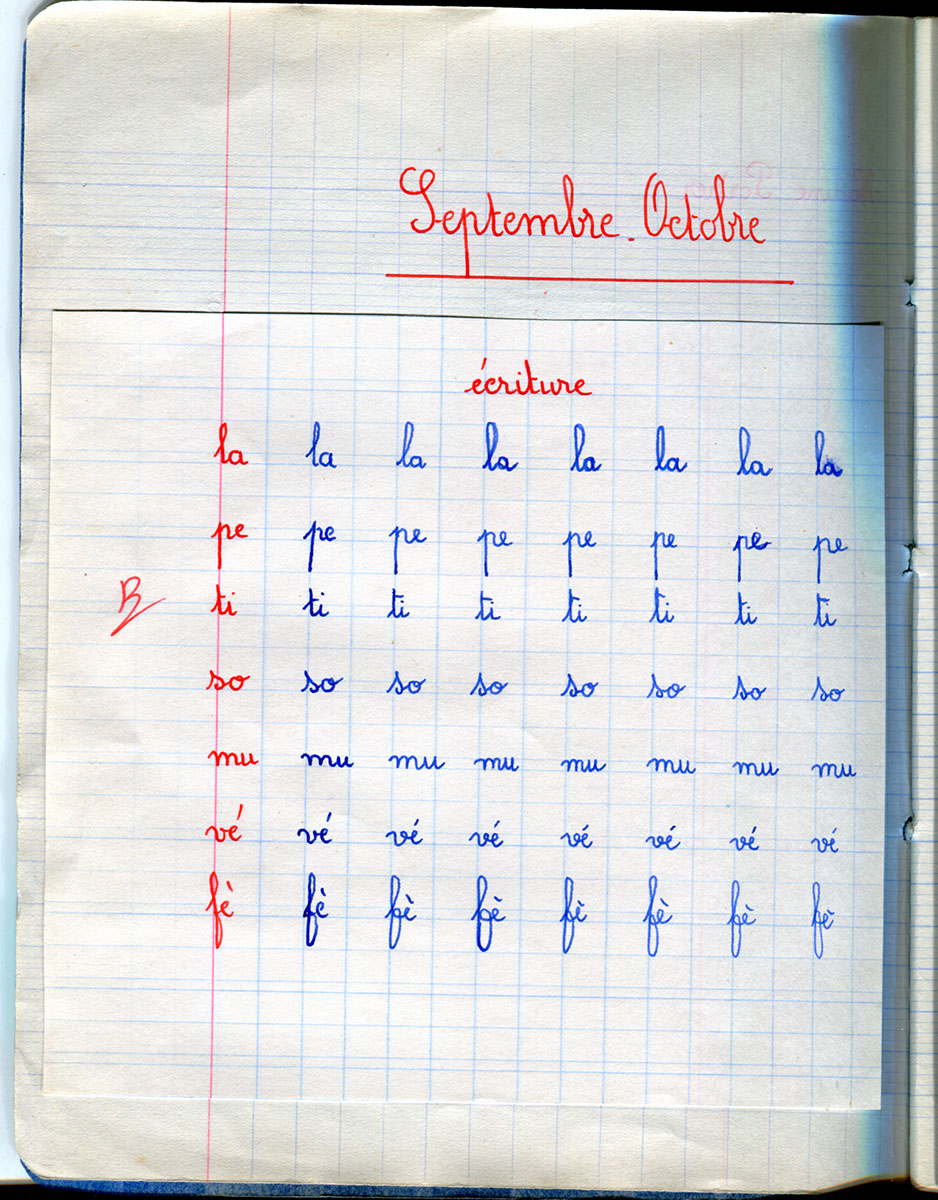 Septembre. Octobre
écriture
la la la la la la la la
pe pe pe pe pe pe pe pe
B ti ti ti ti ti ti ti ti
so so so so so so so so
mu mu mu mu mu mu mu mu
vé vé vé vé vé vé vé vé
fè fè fè fè fè fè fè fè